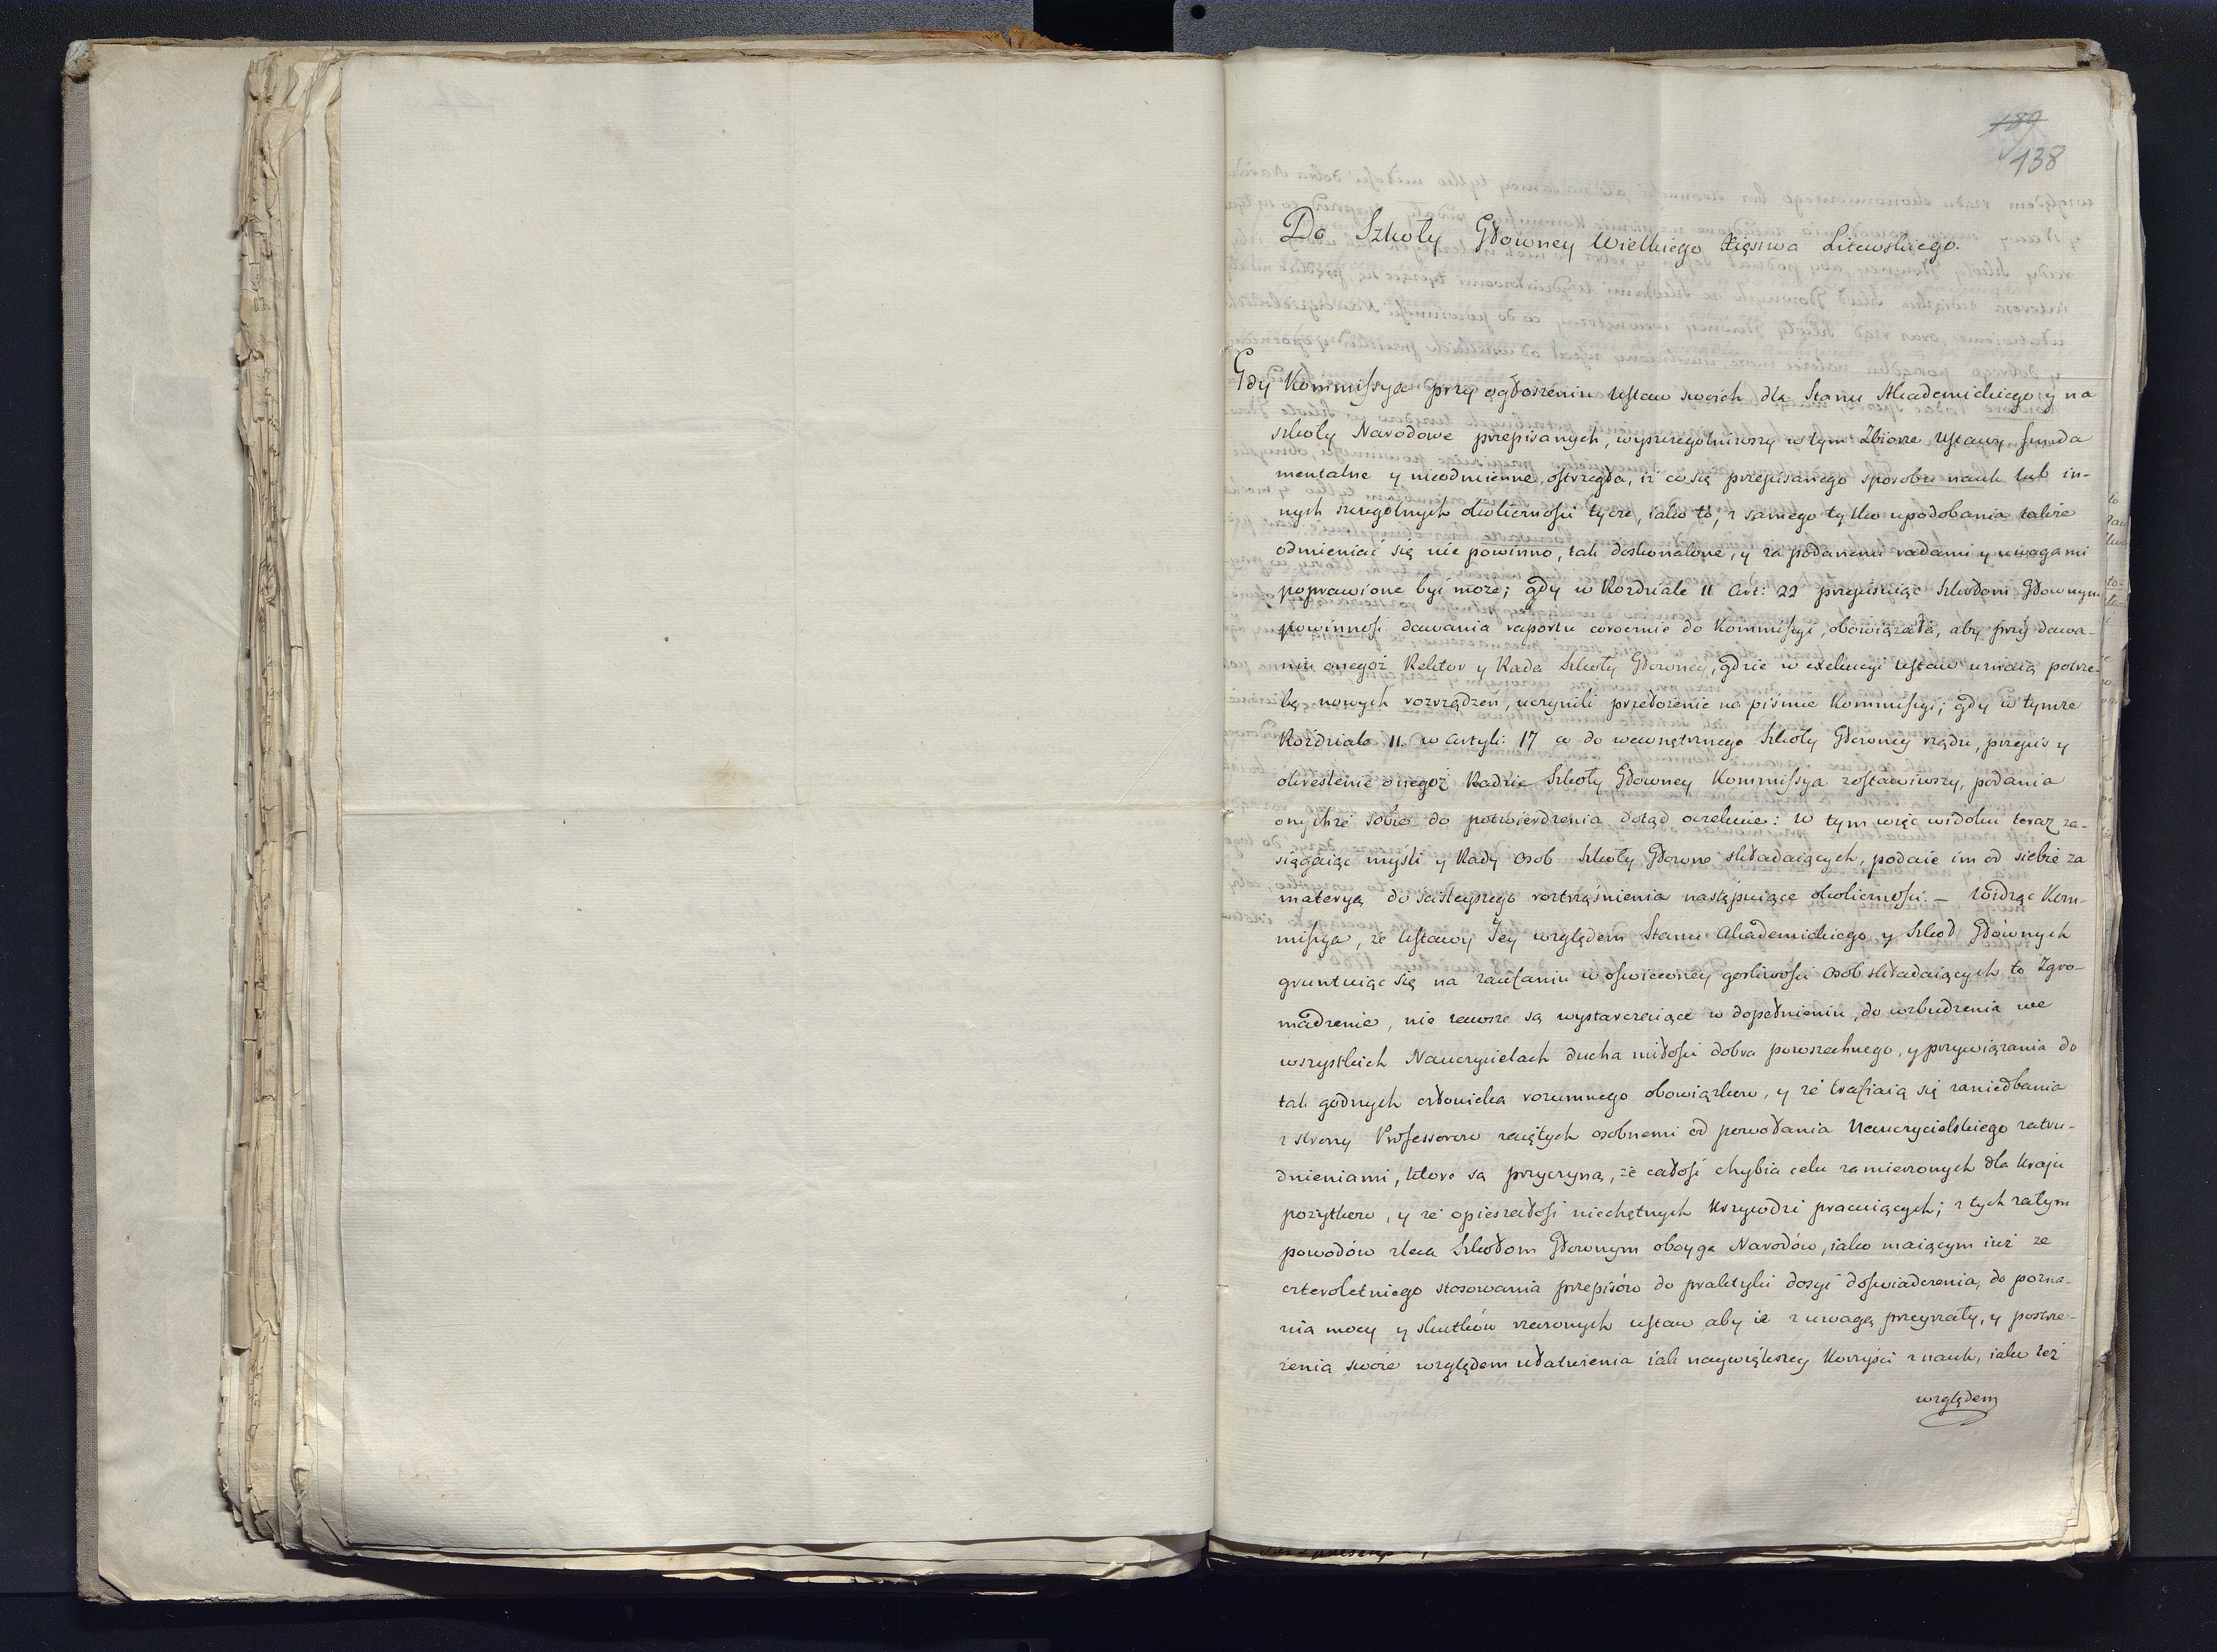 189
138
Do Szkoły Głowney Wielkiego Xięstwa Litewskiego.
Gdy Kommissya przy ogłoszeniu Ustaw swoich dla Stanu Akademickiego y na
szkoły Narodowe przepisanych, wyszczegolniwszy w tym Zbiorze Ustawy funda
mentalne y nieodmienne, ostrzegła, iż co się przepisanego sposobu nauk lub in-
nych szczegolnych okoliczności tycze, iako to, z samego tylko upodobania także
odmieniać się nie powinno, tak doskonalone, y za podanemi radami y uwagami
poprawione być może; gdy w Rozdziale II Art: 22 przepisuiąc Szkołom Głownym
powinność dawania raportu corocznie do Kommissyi, obowiązała, aby przy dawa-
niu onegoż Rektor y Rada Szkoły Głowney, gdzie w exekucyi Ustaw uznaią potrze-
bę nowych rozrządzeń, uczynili przełożenie na piśmie Kommissyi; gdy w tymże
Rozdziale II. w Artyk: 17 co do wewnętrznego Szkoły Głowney rządu, przepis y
okreslenie onegoż Radzie Szkoły Głowney Kommissya zostawiwszy, podania
onychże sobie do potwierdzenia dotąd oczekuie: w tym więc widoku teraz za-
siągaiąc myśli y Rady osob Szkoły Głowne składaiących, podaie im od siebie za
materyą do ściśleyszego roztrząśnienia następuiące okoliczności. — Widząc Kom-
missya, że Ustawy Jey względem Stanu Akademickiego y Szkoł Głównych
gruntuiąc się na zaufaniu w oświeconey gorliwości osob składaiących to Zgro-
madzenie, nie zawsze są wystarczaiące w dopełnieniu, do wzbudzenia we
wszystkich Nauczycielach ducha miłości dobra powszechnego, y przywiązania do
tak godnych człowieka rozumnego obowiązkow, y że trafiaią się zaniedbania
z strony Professorow zaiętych osobnemi od powołania Nauczycielskiego zatru-
dnieniami, ktore są przyczyną, że całość chybia celu zamierzonych dla kraju
pożytkow, y że opieszałość niechętnych krzywdzi pracuiących; z tych zatym
powodów zleca Szkołom Głownym oboyga Narodów, iako maiącym iuż ze
czteroletniego stosowania przepisów do praktyki dosyć doświadczenia, do pozna-
nia mocy y skutków rzeczonych ustaw aby ie z uwagą przeyrzały, y postrze-
żenia swoie względem ułatwienia iak naywiększey korzyści z nauk, iako też
względem